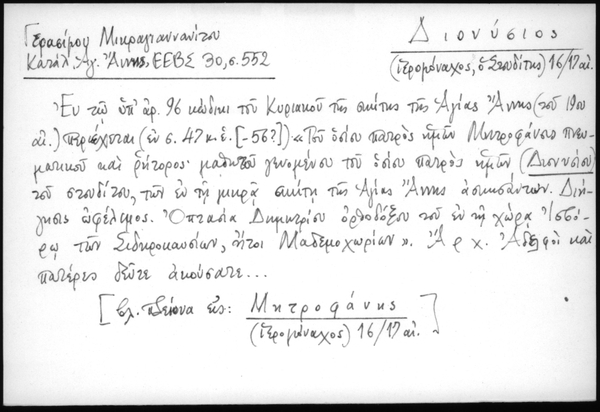 Γερασίμου Μικραγιαννανίτου
Κατάλ. Ἁγ. Ἄννης, ΕΕΒΣ 30, σ. 552
Διονύσιος
(ἱερομόναχος, ὁ Στουδίτης) 16/17 αἰ.
Ἐν τῷ ὑπ' ἀρ. 96 κώδικι τοῦ Κυριακοῦ τῆς σκήτης τῆς Ἁγίας Ἄννης (τοῦ 19ου
αἰ.) περιέχεται (ἐν σ. 47 κ.ἑ. [-56?]) «Τοῦ ὁσίου πατρὸς ἡμῶν Μητροφάνους πνευ-
ματικοῦ καὶ ῥήτορος· μαθητοῦ γενομένου τοῦ ὁσίου πατρὸς ἡμῶν (Διονυσίου)
τοῦ στουδίτου, τῶν ἐν τῇ μικρᾷ σκήτῃ τῆς Ἁγίας Ἄννης ἀσκησάντων. Διή-
γησις ὠφέλιμος. Ὀπτασία Δημητρίου ὀρθοδόξου τοῦ ἐν τῇ χώρᾳ Ἰσβό-
ρῳ τῶν Σιδηροκαυσίων, ἤτοι Μαδεμοχωρίων». Ἀρχ. Ἀδελφοὶ καὶ
πατέρες δεῦτε ἀκούσατε...
[βλ. πλείονα εἰς: Μητροφάνης
(ἱερομόναχος) 16/17 αἰ.]